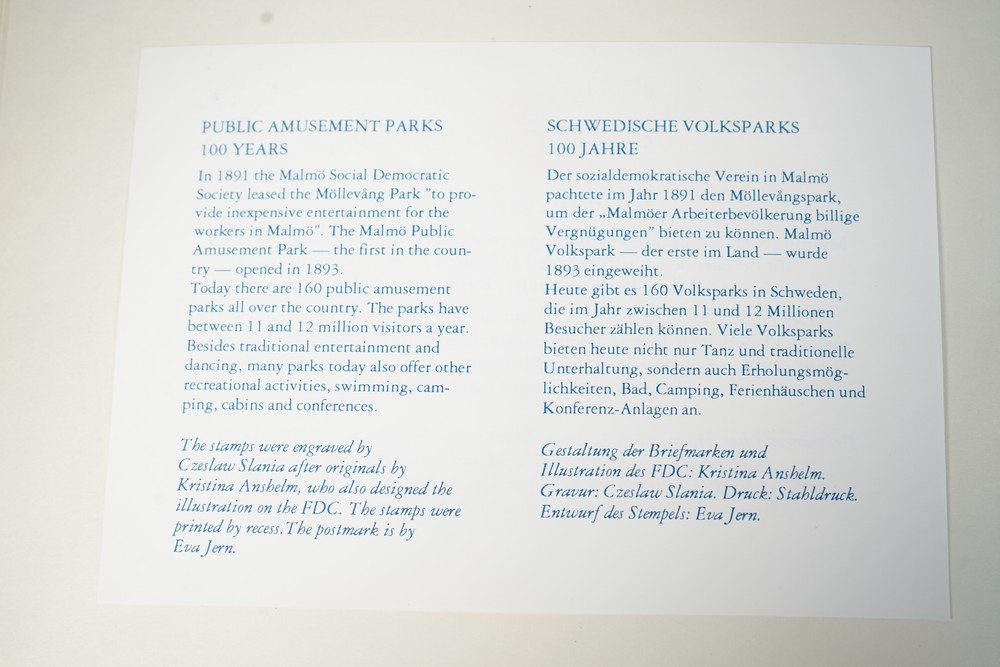 PUBLIC AMUSEMENT PARKS
100 YEARS
In 1891 the Malmö Social Democratic
Society leased the Möllevång Park "to pro-
vide inexpensive entertainment for the
workers in Malmö". The Malmö Public
Amusement Park — the first in the coun-
try — opened in 1893.
Today there are 160 public amusement
parks all over the country. The parks have
between 11 and 12 million visitors a year.
Besides traditional entertainment and
dancing, many parks today also offer other
recreational activities, swimming, cam-
ping, cabins and conferences.
The stamps were engraved by
Czeslaw Slania after originals by
Kristina Anshelm, who also designed the
illustration on the FDC. The stamps were
printed by recess. The postmark is by
Eva Jern.
SCHWEDISCHE VOLKSPARKS
100 JAHRE
Der sozialdemokratische Verein in Malmö
pachtete im Jahr 1891 den Möllevångspark,
um der „Malmöer Arbeiterbevölkerung billige
Vergnügungen" bieten zu können. Malmö
Volkspark — der erste im Land — wurde
1893 eingeweiht.
Heute gibt es 160 Volksparks in Schweden,
die im Jahr zwischen 11 und 12 Millionen
Besucher zählen können. Viele Volksparks
bieten heute nicht nur Tanz und traditionelle
Unterhaltung, sondern auch Erholungsmög-
lichkeiten, Bad, Camping, Ferienhäuschen und
Konferenz-Anlagen an.
Gestaltung der Briefmarken und
Illustration des FDC: Kristina Anshelm.
Gravur: Czeslaw Slania. Druck: Stahldruck.
Entwurf des Stempels: Eva Jern.